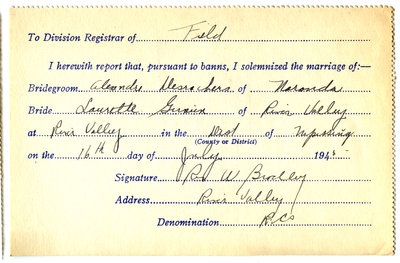 To Division Registrar of Field
I hereby report that, pursuant to banns, I solemnized the marriage of:—
Bridegroom Desrochers of Noranda
Bride Laurette of River Valley
at River Valley in the Dist of Nipissing
(County or District)
on the 16th day of July 194
Signature B. W. Bradley
Address River Valley
Denomination R.C.